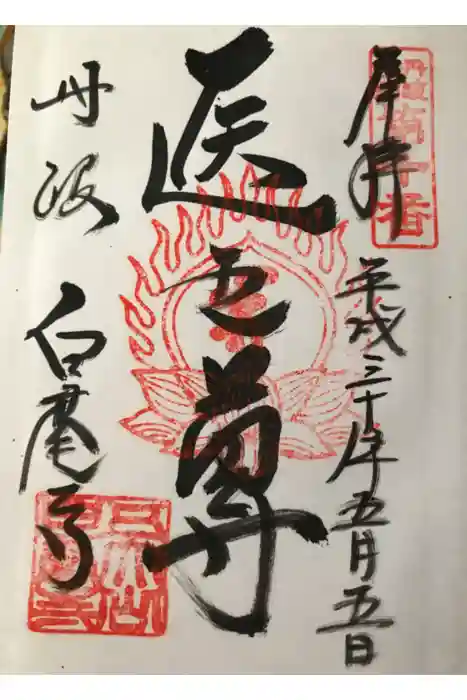 奉拝
平成三十年五月五日
医王尊
丹波
白毫寺